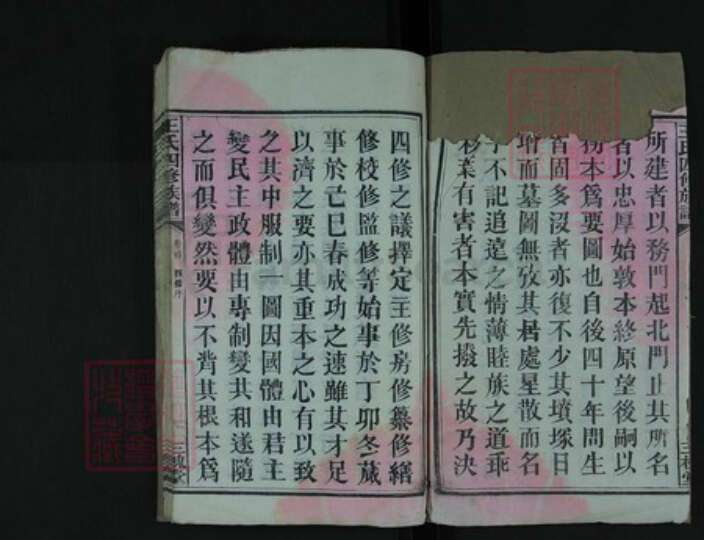 王氏四修族譜
所建者以務門起北門止其所名
者以忠厚始敦本終原望後嗣以
務本爲要圖也自後四十年間生
者固多沒者亦復不少其墳塚日
增而墓圖無攷其居處星散而名
字不記追遠之情薄睦族之道乖
枝葉有害者本實先撥之故乃決
四修之議擇定主修房修纂修繕
修校修監修等始事於丁卯冬蕆
事於己巳春成功之速雖其才足
以濟之要亦其重本之心有以致
之其中服制一圖因國體由君主
變民主政體由專制變共和遂隨
之而俱變然要以不背其根本爲
王氏四修族譜
三槐堂